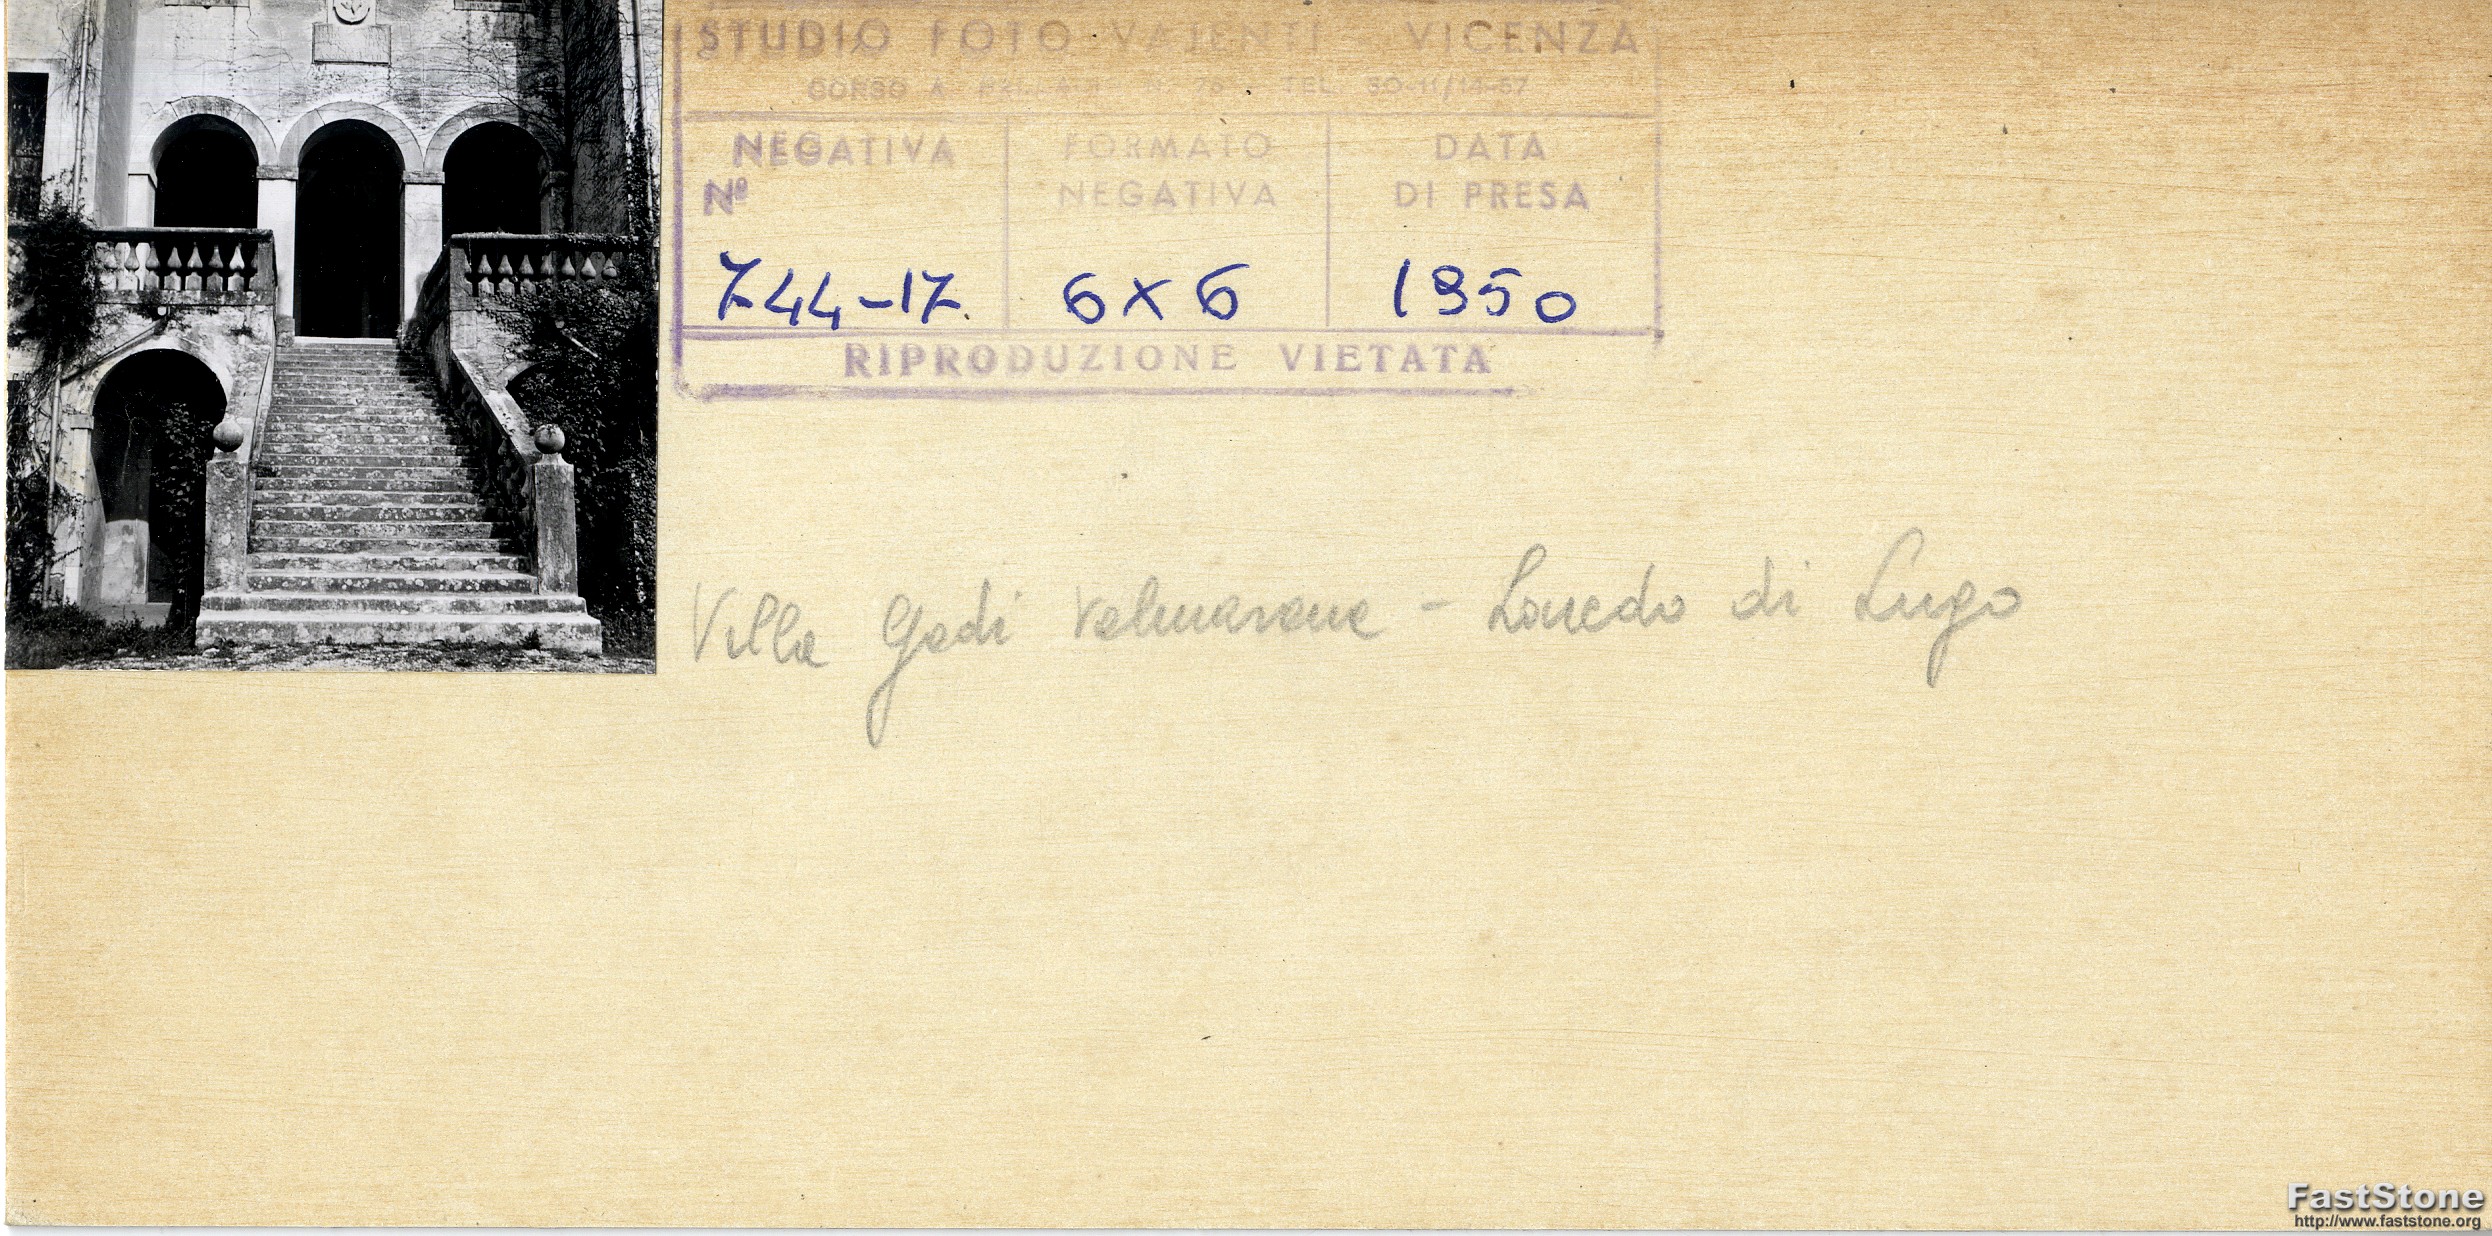 STUDIO FOTO VAJENTI VICENZA
CORSO A. N. TEL.
NEGATIVA
Nº
FORMATO
NEGATIVA
DATA
DI PRESA
744-17
6x6
1950
RIPRODUZIONE VIETATA
Villa Godi Valmarana - Lonedo di Lugo
FastStone
http://www.faststone.org